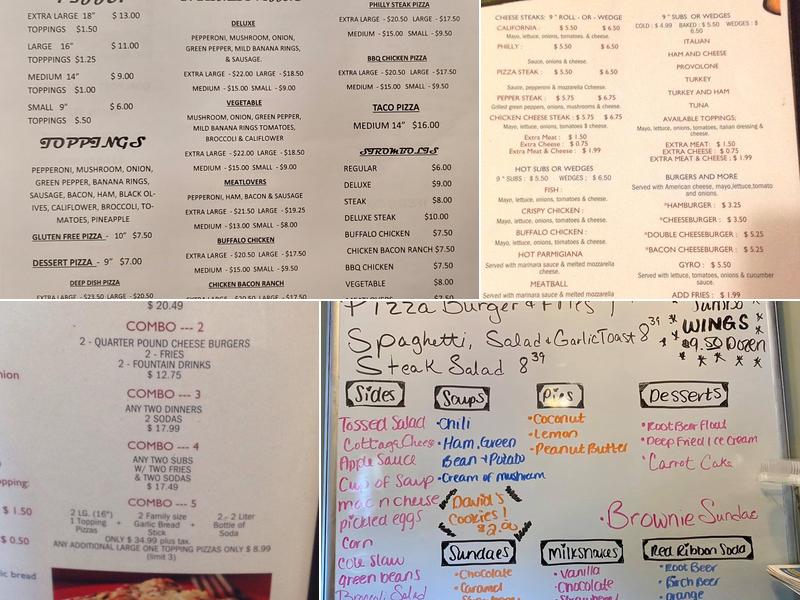 EXTRA LARGE 18" $ 13.00
TOPPINGS $1.50
LARGE 16" $ 11.00
TOPPPINGS $1.25
MEDIUM 14" $ 9.00
TOPPPINGS $1.00
SMALL 9" $ 6.00
TOPPINGS $.50
TOPPINGS
PEPPERONI, MUSHROOM, ONION,
GREEN PEPPER, BANANA RINGS,
SAUSAGE, BACON, HAM, BLACK OL-
IVES, CALIFLOWER, BROCCOLI, TO-
MATOES, PINEAPPLE
GLUTEN FREE PIZZA - 10" $7.50
DESSERT PIZZA - 9" $7.00
DEEP DISH PIZZA
EXTRA LARGE - $23.50 LARGE - $20.50
DELUXE
PEPPERONI, MUSHROOM, ONION,
GREEN PEPPER, MILD BANANA RINGS,
& SAUSAGE.
EXTRA LARGE - $22.00 LARGE - $18.50
MEDIUM - $15.00 SMALL - $9.00
VEGETABLE
MUSHROOM, ONION, GREEN PEPPER,
MILD BANANA RINGS TOMATOES,
BROCCOLI & CALIFLOWER
EXTRA LARGE - $22.00 LARGE - $18.50
MEDIUM - $15.00 SMALL - $9.00
MEATLOVERS
PEPPERONI, HAM, BACON & SAUSAGE
EXTRA LARGE - $21.50 LARGE - $19.25
MEDIUM - $13.00 SMALL - $8.00
BUFFALO CHICKEN
EXTRA LARGE - $20.50 LARGE - $17.50
MEDIUM - $15.00 SMALL - $9.50
CHICKEN BACON RANCH
EXTRA LARGE - $20.50 LARGE - $17.50
PHILLY STEAK PIZZA
EXTRA LARGE - $20.50 LARGE - $17.50
MEDIUM - $15.00 SMALL - $9.50
BBQ CHICKEN PIZZA
EXTRA LARGE - $20.50 LARGE - $17.50
MEDIUM - $15.00 SMALL - $9.50
TACO PIZZA
MEDIUM 14" $16.00
STROMBOLIS
REGULAR $6.00
DELUXE $9.00
STEAK $8.00
DELUXE STEAK $10.00
BUFFALO CHICKEN $7.50
CHICKEN BACON RANCH $7.50
BBQ CHICKEN $7.50
VEGETABLE $8.00
MEATLOVERS $7.50
CHEESE STEAKS: 9 " ROLL - OR - WEDGE
CALIFORNIA : $ 5.50 $ 6.50
Mayo, lettuce, onions, tomatoes, & cheese.
PHILLY : $ 5.50 $ 6.50
Sauce, onions & cheese.
PIZZA STEAK : $ 5.50 $ 6.50
Sauce, pepperoni & mozzarella Ccheese.
PEPPER STEAK : $ 5.75 $ 6.75
Grilled green peppers, onions, mushrooms & cheese.
CHICKEN CHEESE STEAK : $ 5.75 $ 6.75
Mayo, lettuce, onions, tomatoes $ cheese.
Extra Meat : $ 1.50
Extra Cheese : $ 0.75
Extra Meat & Cheese : $ 1.99
HOT SUBS OR WEDGES
9 " SUBS : $ 5.50 WEDGES : $ 6.50
FISH :
Mayo, lettuce, onions, tomatoes & cheese.
CRISPY CHICKEN :
Mayo, lettuce, onions, tomatoes & cheese.
BUFFALO CHICKEN :
Mayo, lettuce, onions, tomatoes & cheese.
HOT PARMIGIANA
Served with marinara sauce & melted mozzarella
cheese.
MEATBALL
Served with marinara sauce & melted mozzarella
9 " SUBS OR WEDGES
COLD : $ 4.99 BAKED : $ 5.50 WEDGES : $
6.50
ITALIAN
HAM AND CHEESE
PROVOLONE
TURKEY
TURKEY AND HAM
TUNA
AVAILABLE TOPPINGS;
Mayo, lettuce, onions, tomatoes, italian dressing &
cheese.
EXTRA MEAT: $ 1.50
EXTRA CHEESE : $ 0.75
EXTRA MEAT & CHEESE : $ 1.99
BURGERS AND MORE
Served with American cheese, mayo,lettuce,tomato
and onions.
*HAMBURGER : $ 3.25
*CHEESEBURGER : $ 3.50
*DOUBLE CHEESEBURGER : $ 5.25
*BACON CHEESEBURGER : $ 5.25
GYRO : $ 5.50
Served with, lettuce, tomatoes, onions & cucumber
sauce.
ADD FRIES : $ 1.99
$ 20.49
COMBO --- 2
2 - QUARTER POUND CHEESE BURGERS
2 - FRIES
2 - FOUNTAIN DRINKS
$ 12.75
COMBO --- 3
ANY TWO DINNERS
2 SODAS
$ 17.99
COMBO --- 4
ANY TWO SUBS
W/ TWO FRIES
& TWO SODAS
$ 17.49
COMBO --- 5
2 LG. (16") 2 Family size 2 - 2 Liter
1 Topping + Garlic Bread + Bottle of
Pizzas Stick Soda
ONLY $ 34.99 plus tax.
ANY ADDITIONAL LARGE ONE TOPPING PIZZAS ONLY $ 8.99
(limit 3)
nion
pping:
$ 1.50
$ 0.50
ic bread
Pizza Burger & Fries
Spaghetti, Salad & Garlic Toast 8 39
Steak Salad 8 39
Jumbo
WINGS
$9.50 Dozen
Sides
Tossed Salad
Cottage Cheese
Apple Sauce
Cup of Soup
mac n cheese
pickled eggs
Corn
Cole Slaw
green beans
Broccoli Salad
Soups
Chili
Ham, Green
Bean & Potato
Cream of mushroom
David's
Cookies!
$2.00
Pies
Coconut
Lemon
Peanut Butter
Desserts
Root Beer Float
Deep Fried Ice Cream
Carrot Cake
Brownie Sundae
Sundaes
Chocolate
Caramel
Strawberry
Milkshakes
Vanilla
Chocolate
Strawberry
Red Ribbon Soda
Root Beer
Birch Beer
Orange